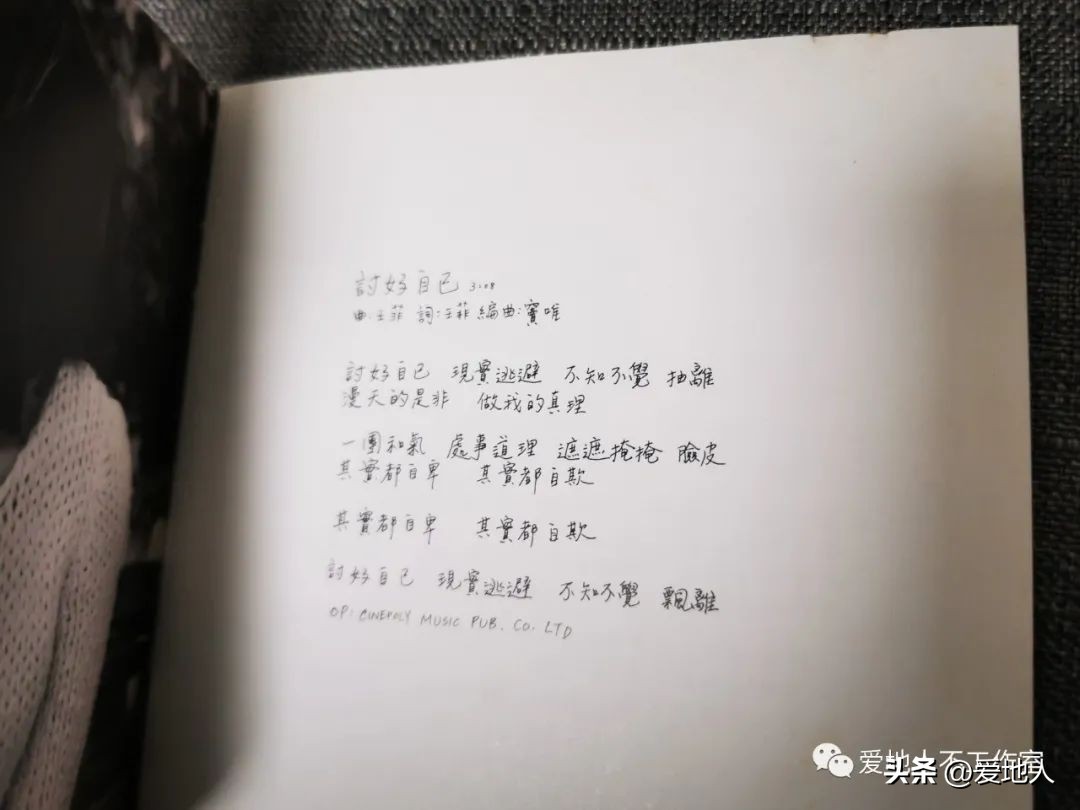 討好自己 3:08
曲:王菲 詞:王菲 編曲:竇唯
討好自己 現實逃避 不知不覺 抽離
漫天的是非 做我的真理
一團和氣 處事道理 遮遮掩掩 臉皮
其實都自卑 其實都自欺
其實都自卑 其實都自欺
討好自己 現實逃避 不知不覺 飄離
OP: CINEPOLY MUSIC PUB. CO. LTD
爱地人不工作室
头条 @爱地人